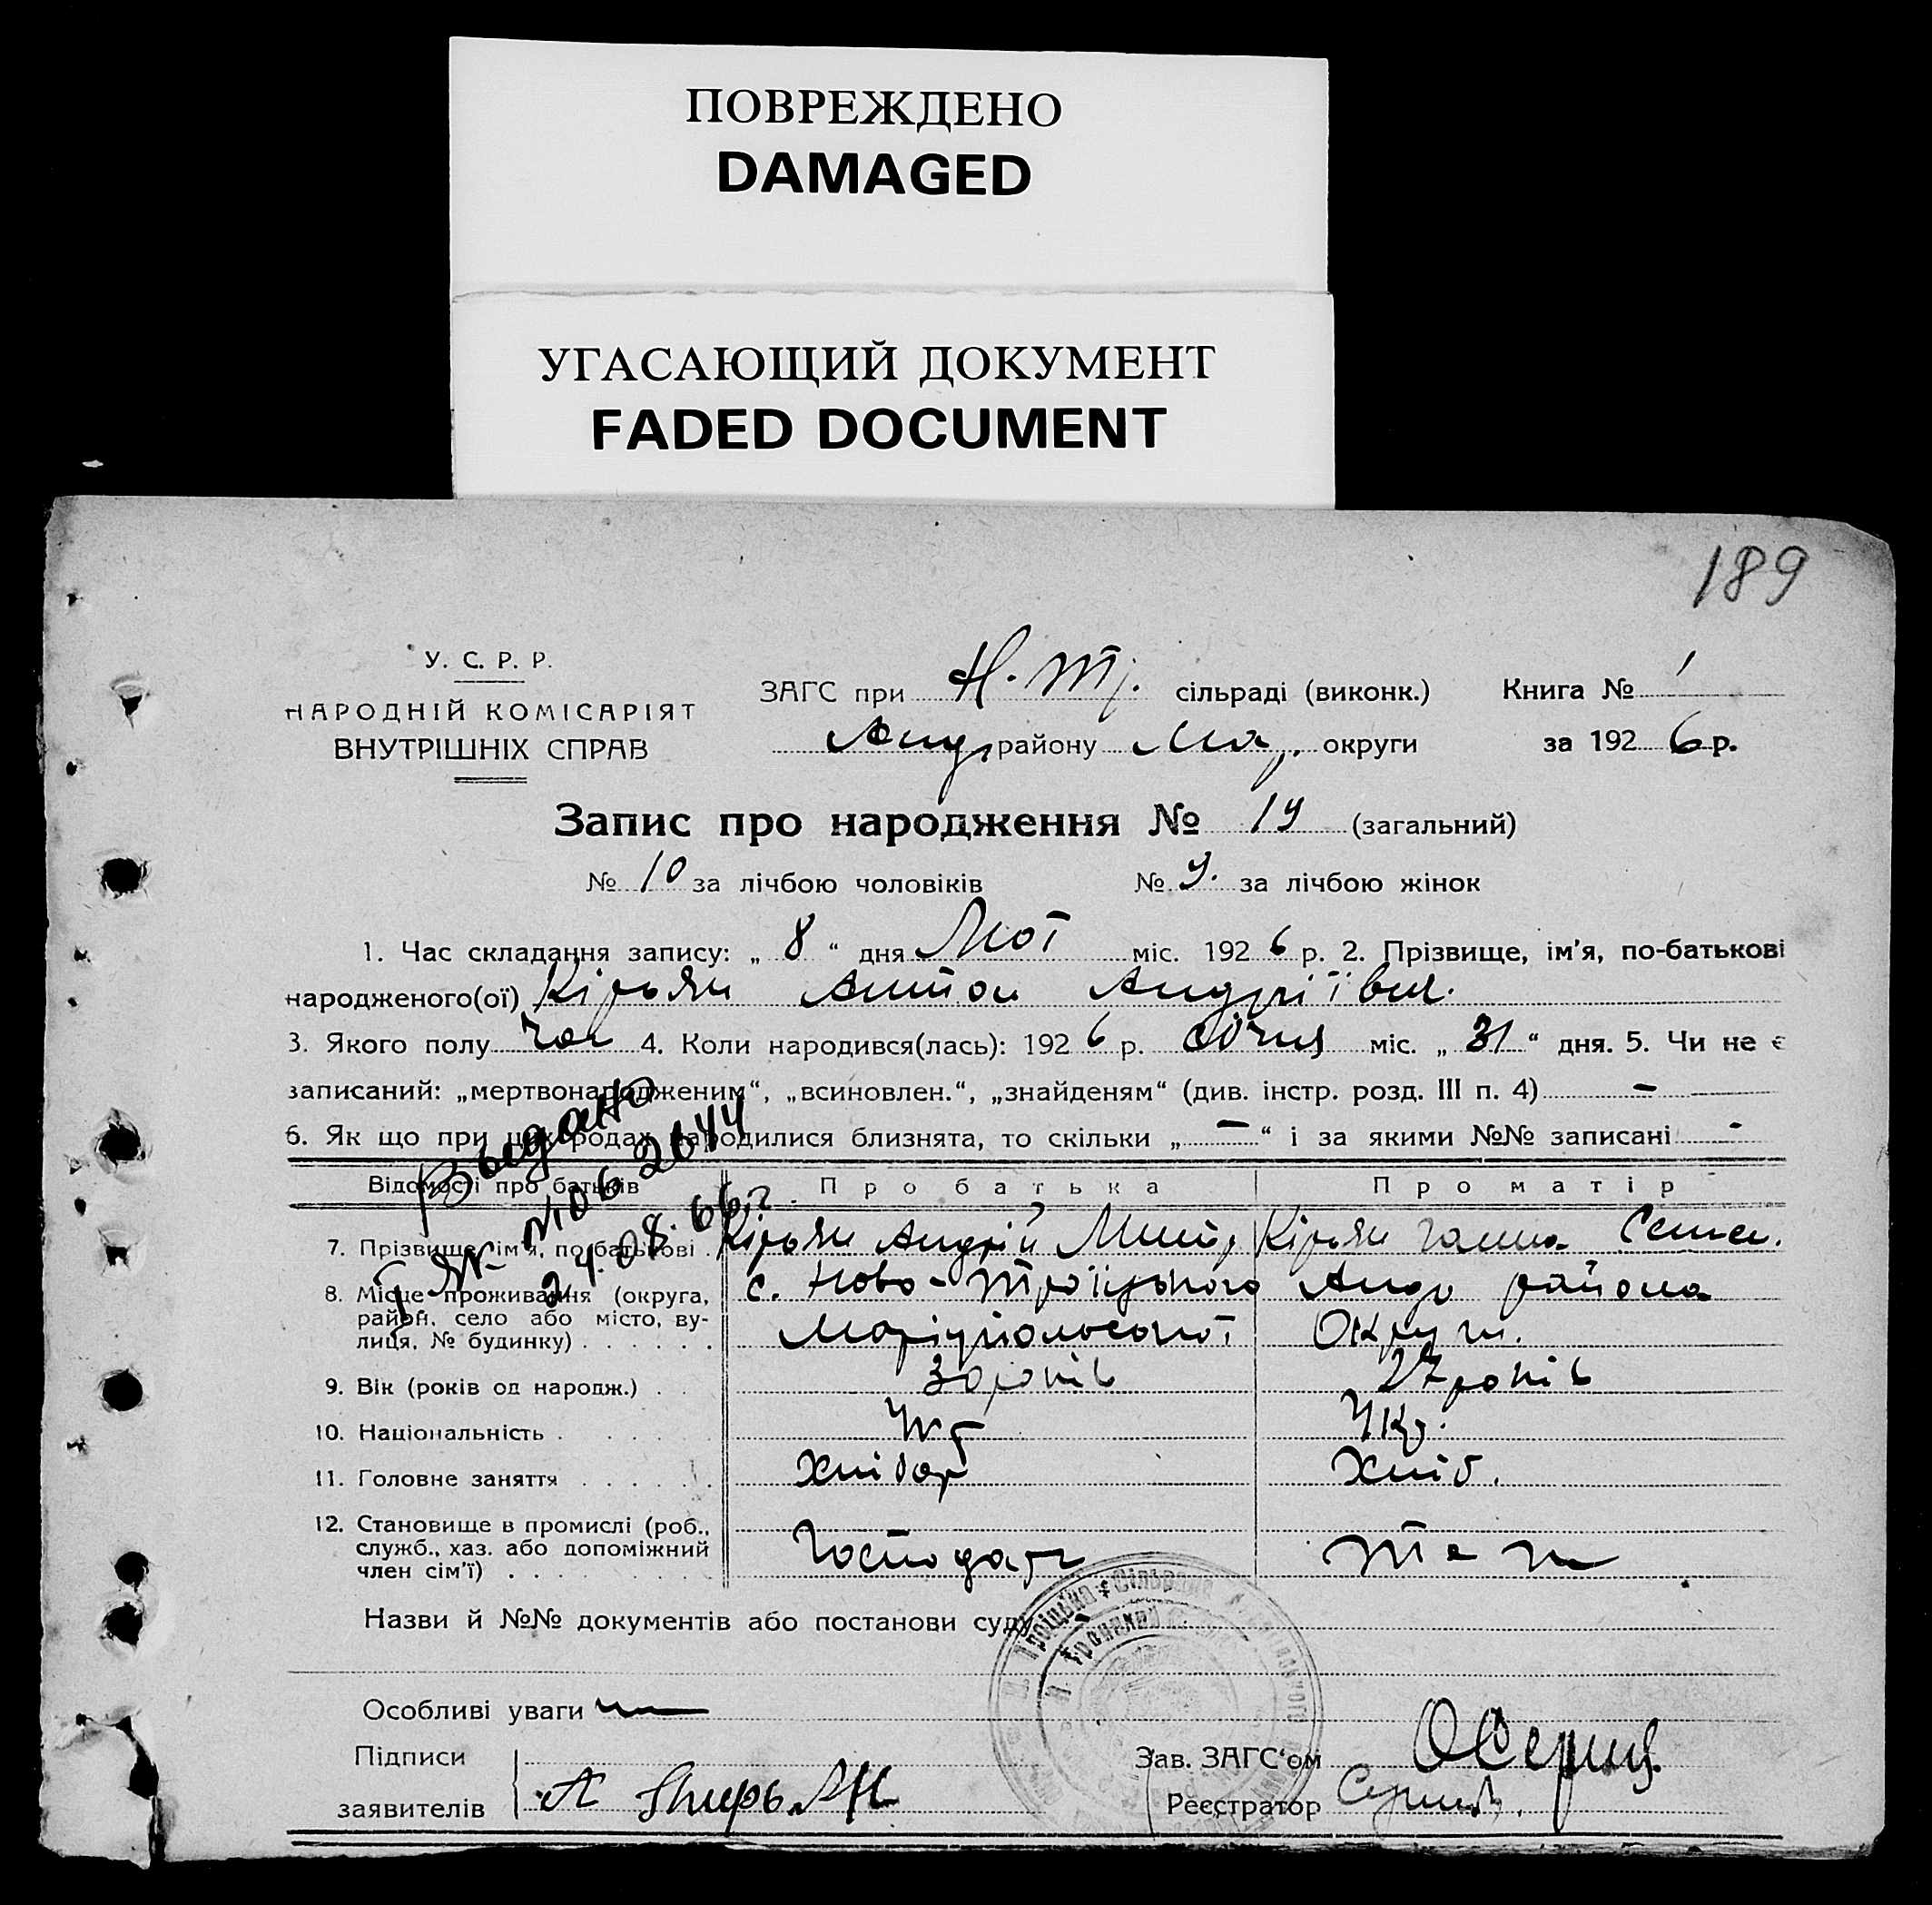 ПОВРЕЖДЕНО
DAMAGED
УГАСАЮЩИЙ ДОКУМЕНТ
FADED DOCUMENT
189
У. С. Р. Р.
НАРОДНІЙ КОМІСАРІЯТ
ВНУТРІШНІХ СПРАВ
ЗАГС при Н. Тр. сільраді (виконк.) Книга № 1
Андр району Мар. округи за 192 6 р.
Запис про народження № 19 (загальний)
№ 10 за лічбою чоловіків № 9. за лічбою жінок
1. Час складання запису: „ 8 “ дня Лют міс. 192 6 р. 2. Прізвище, ім'я, по-батькові
народженого(ої) Кірьян Антон Андріїв
3. Якого полу чол 4. Коли народився(лась): 192 6 р. січня міс. „ 31 “ дня. 5. Чи не є
записаний: „мертвонародженим“, „всиновлен.“, „знайденям“ (див. інстр. розд. III п. 4) —
6. Як що при цих родах народилися близнята, то скільки „ — “ і за якими №№ записані -
Выдано
I ЯК № 062644
24.08.66 г.
Відомості про батьків Про батька Про матір
7. Прізвище, ім'я, по-батькові . Кірьян Андрій Дмит Кірьян Ганна Семен.
8. Місце проживання (округа, с. Ново-Троіцького Андр района
район, село або місто, ву-
лиця, № будинку) . . . . . . Маріупольської Округи.
9. Вік (років од народж.) . . 30 років 27 років
10. Національність . Укр Укр.
11. Головне заняття . . . . . . Хлібор Хліб.
12. Становище в промислі (роб.,
служб., хаз. або допоміжний
член сім'ї) . . . . . . Господар
Назви й №№ документів або постанови суду
Особливі уваги
Підписи
заявителів А КирьЯН
Зав. ЗАГС'ом
Реєстратор
Троіцька Сільрада